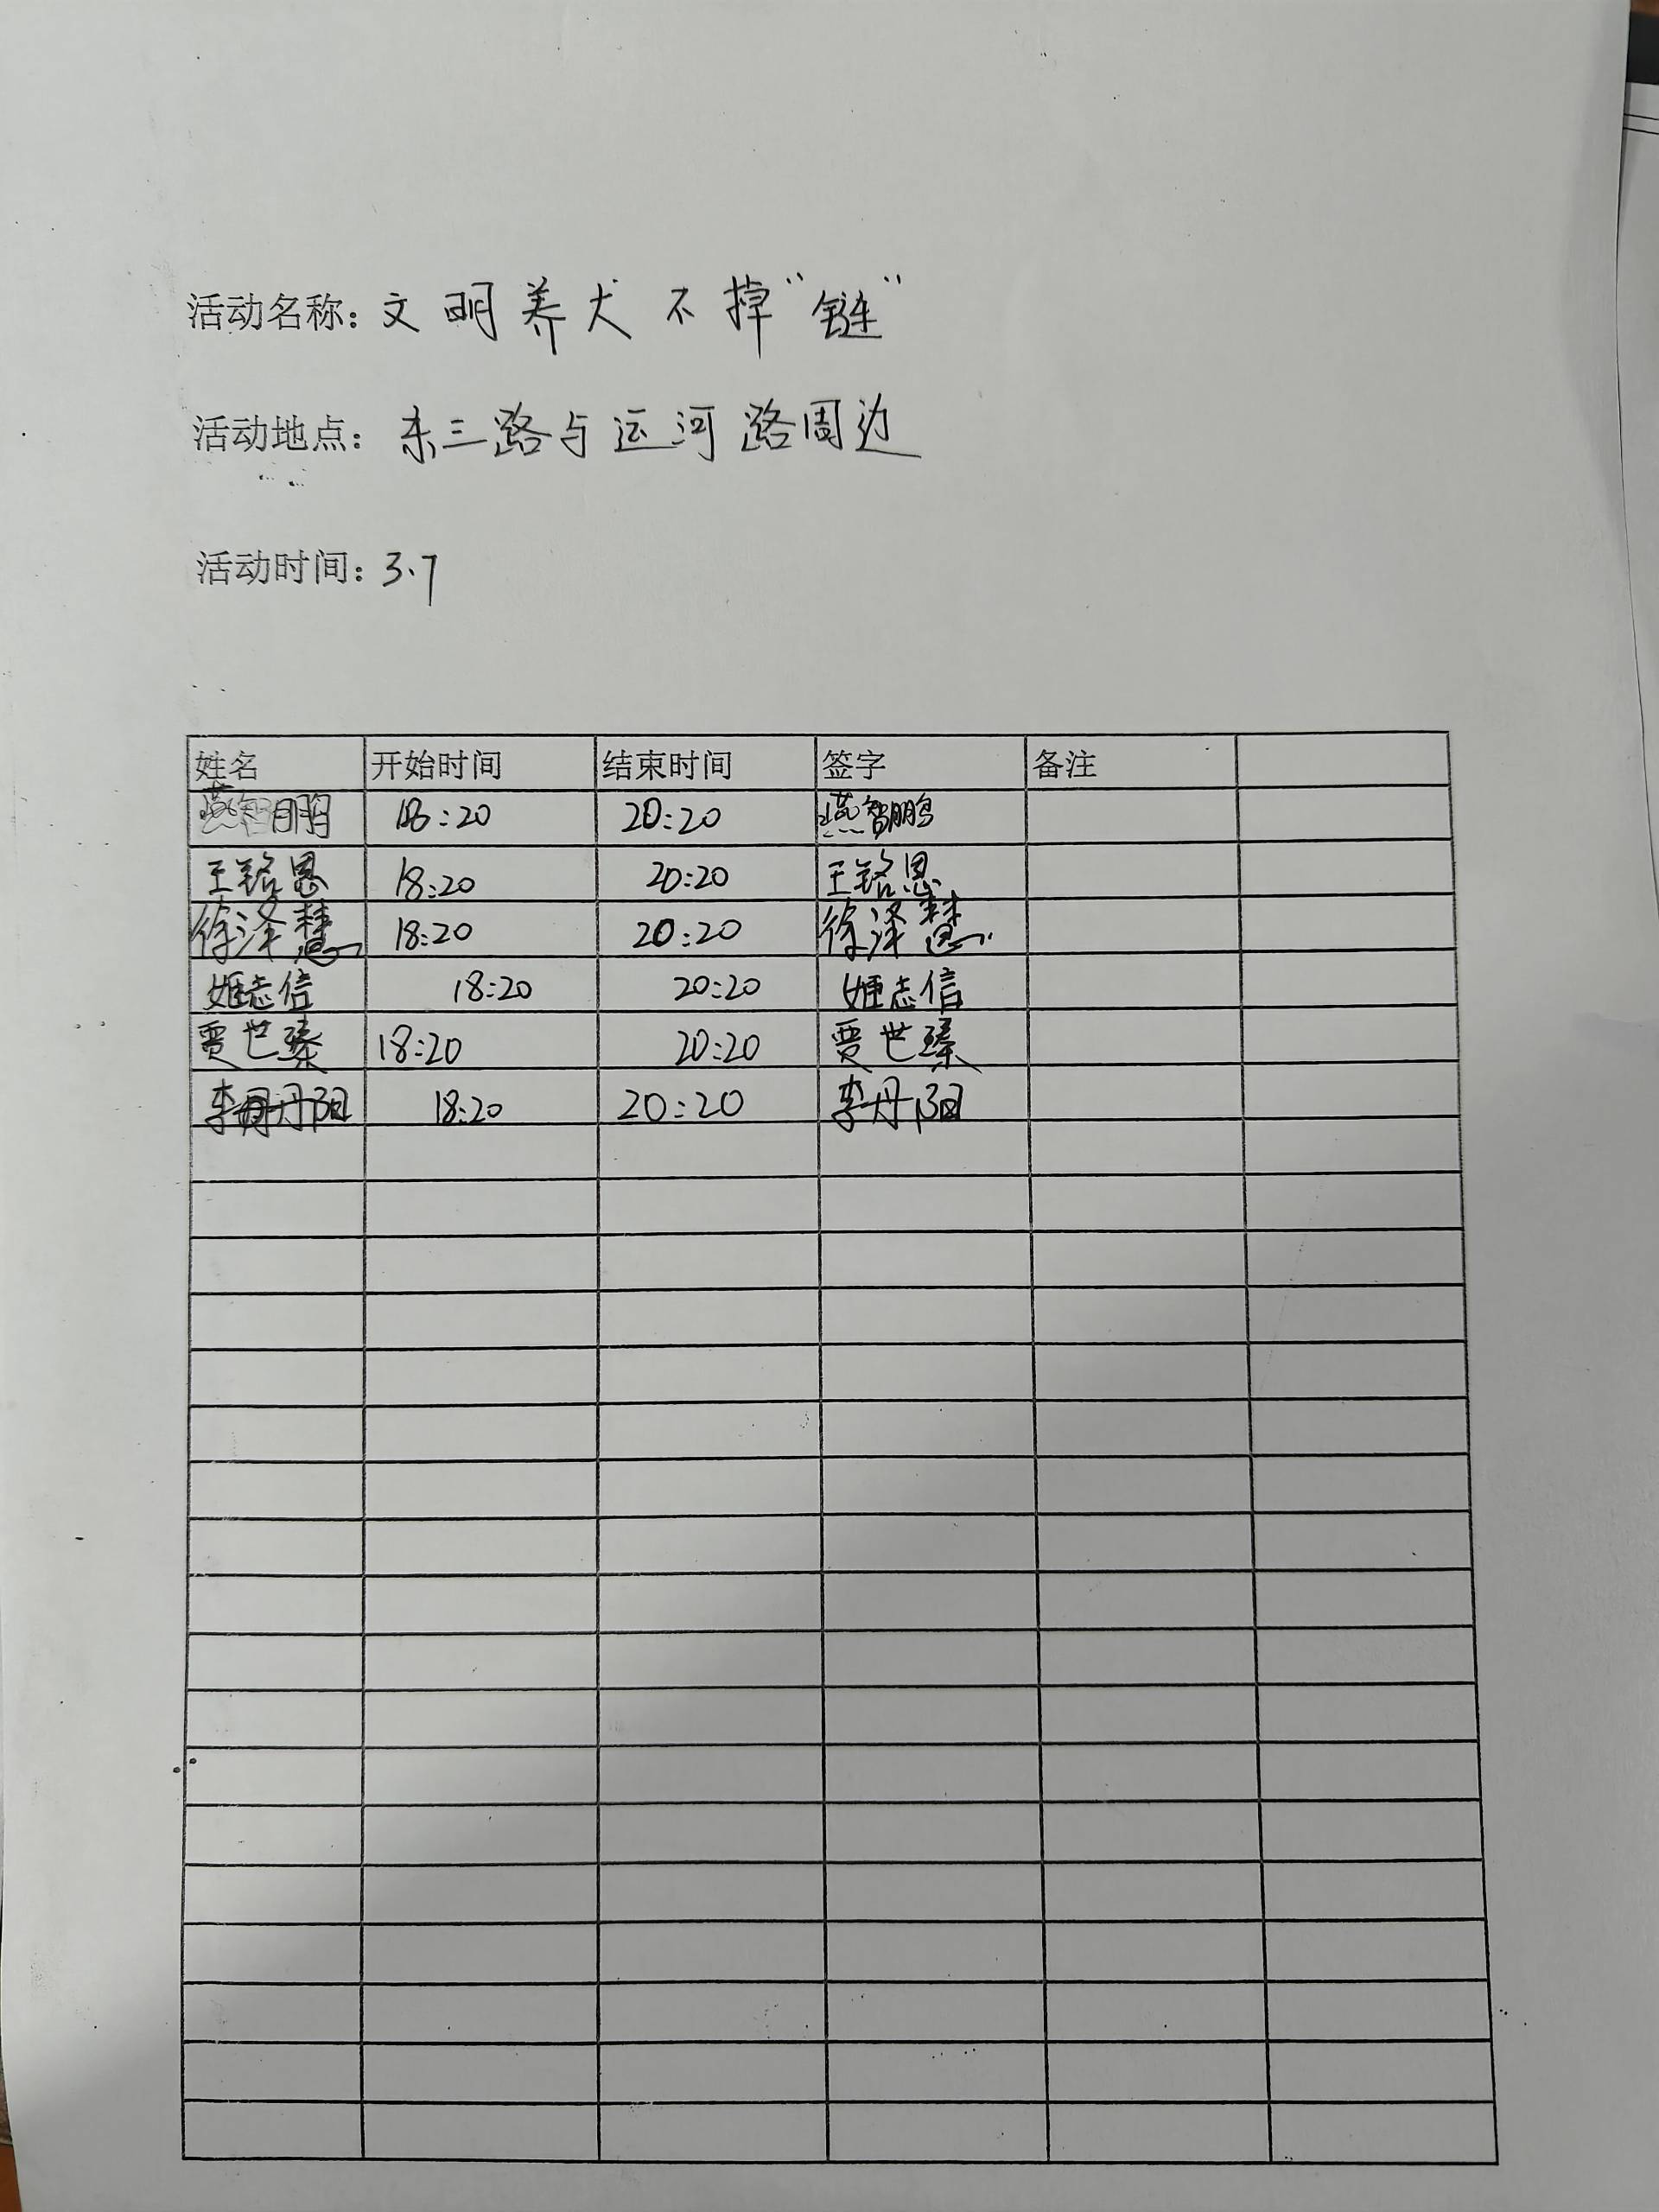 活动名称：文明养犬不掉“链”
活动地点：东三路与运河路周边
活动时间：3.7
姓名 开始时间 结束时间 签字 备注
燕智鹏 18:20 20:20 燕智鹏
王铭恩 18:20 20:20 王铭恩
徐泽慧 18:20 20:20 徐泽慧
姬志信 18:20 20:20 姬志信
贾世臻 18:20 20:20 贾世臻
李丹阳 18:20 20:20 李丹阳